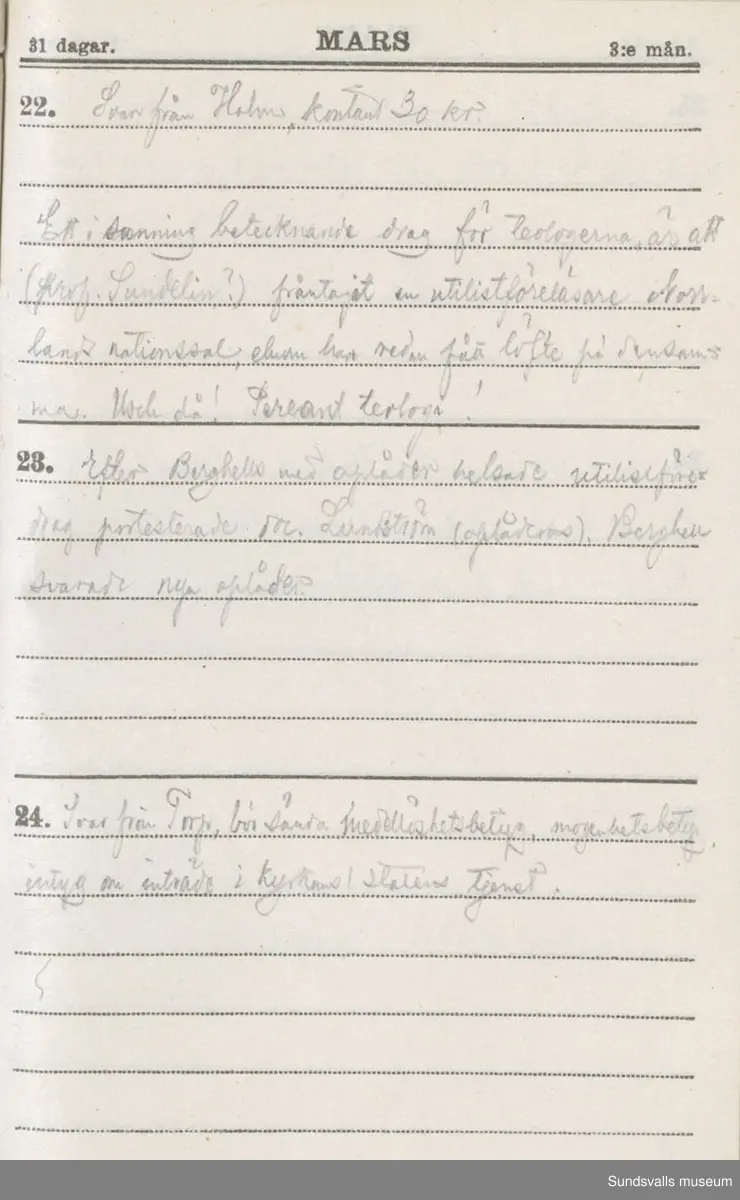 31 dagar. MARS 3:e mån.
22. Svar från Holm, kontant 30 kr.
Ett i sanning betecknande drag för teologerna, är att
(prof. Sundelin?) fråntagit en utilistföreläsare Norr-
lands nationssal, ehuru han redan fått löfte på densam-
ma. Usch då! Pereant teologi!
23. Efter Berghells med aplåder helsade utilistföre-
drag protesterade doc. Lundström (aplåderas). Berghell
svarade nya aplåder.
24. Svar från Torp, bör sända medellöshetsbetyg, mogenhetsbetyg,
intyg om inträde i kyrkans / statens tjenst.
Sundsvalls museum